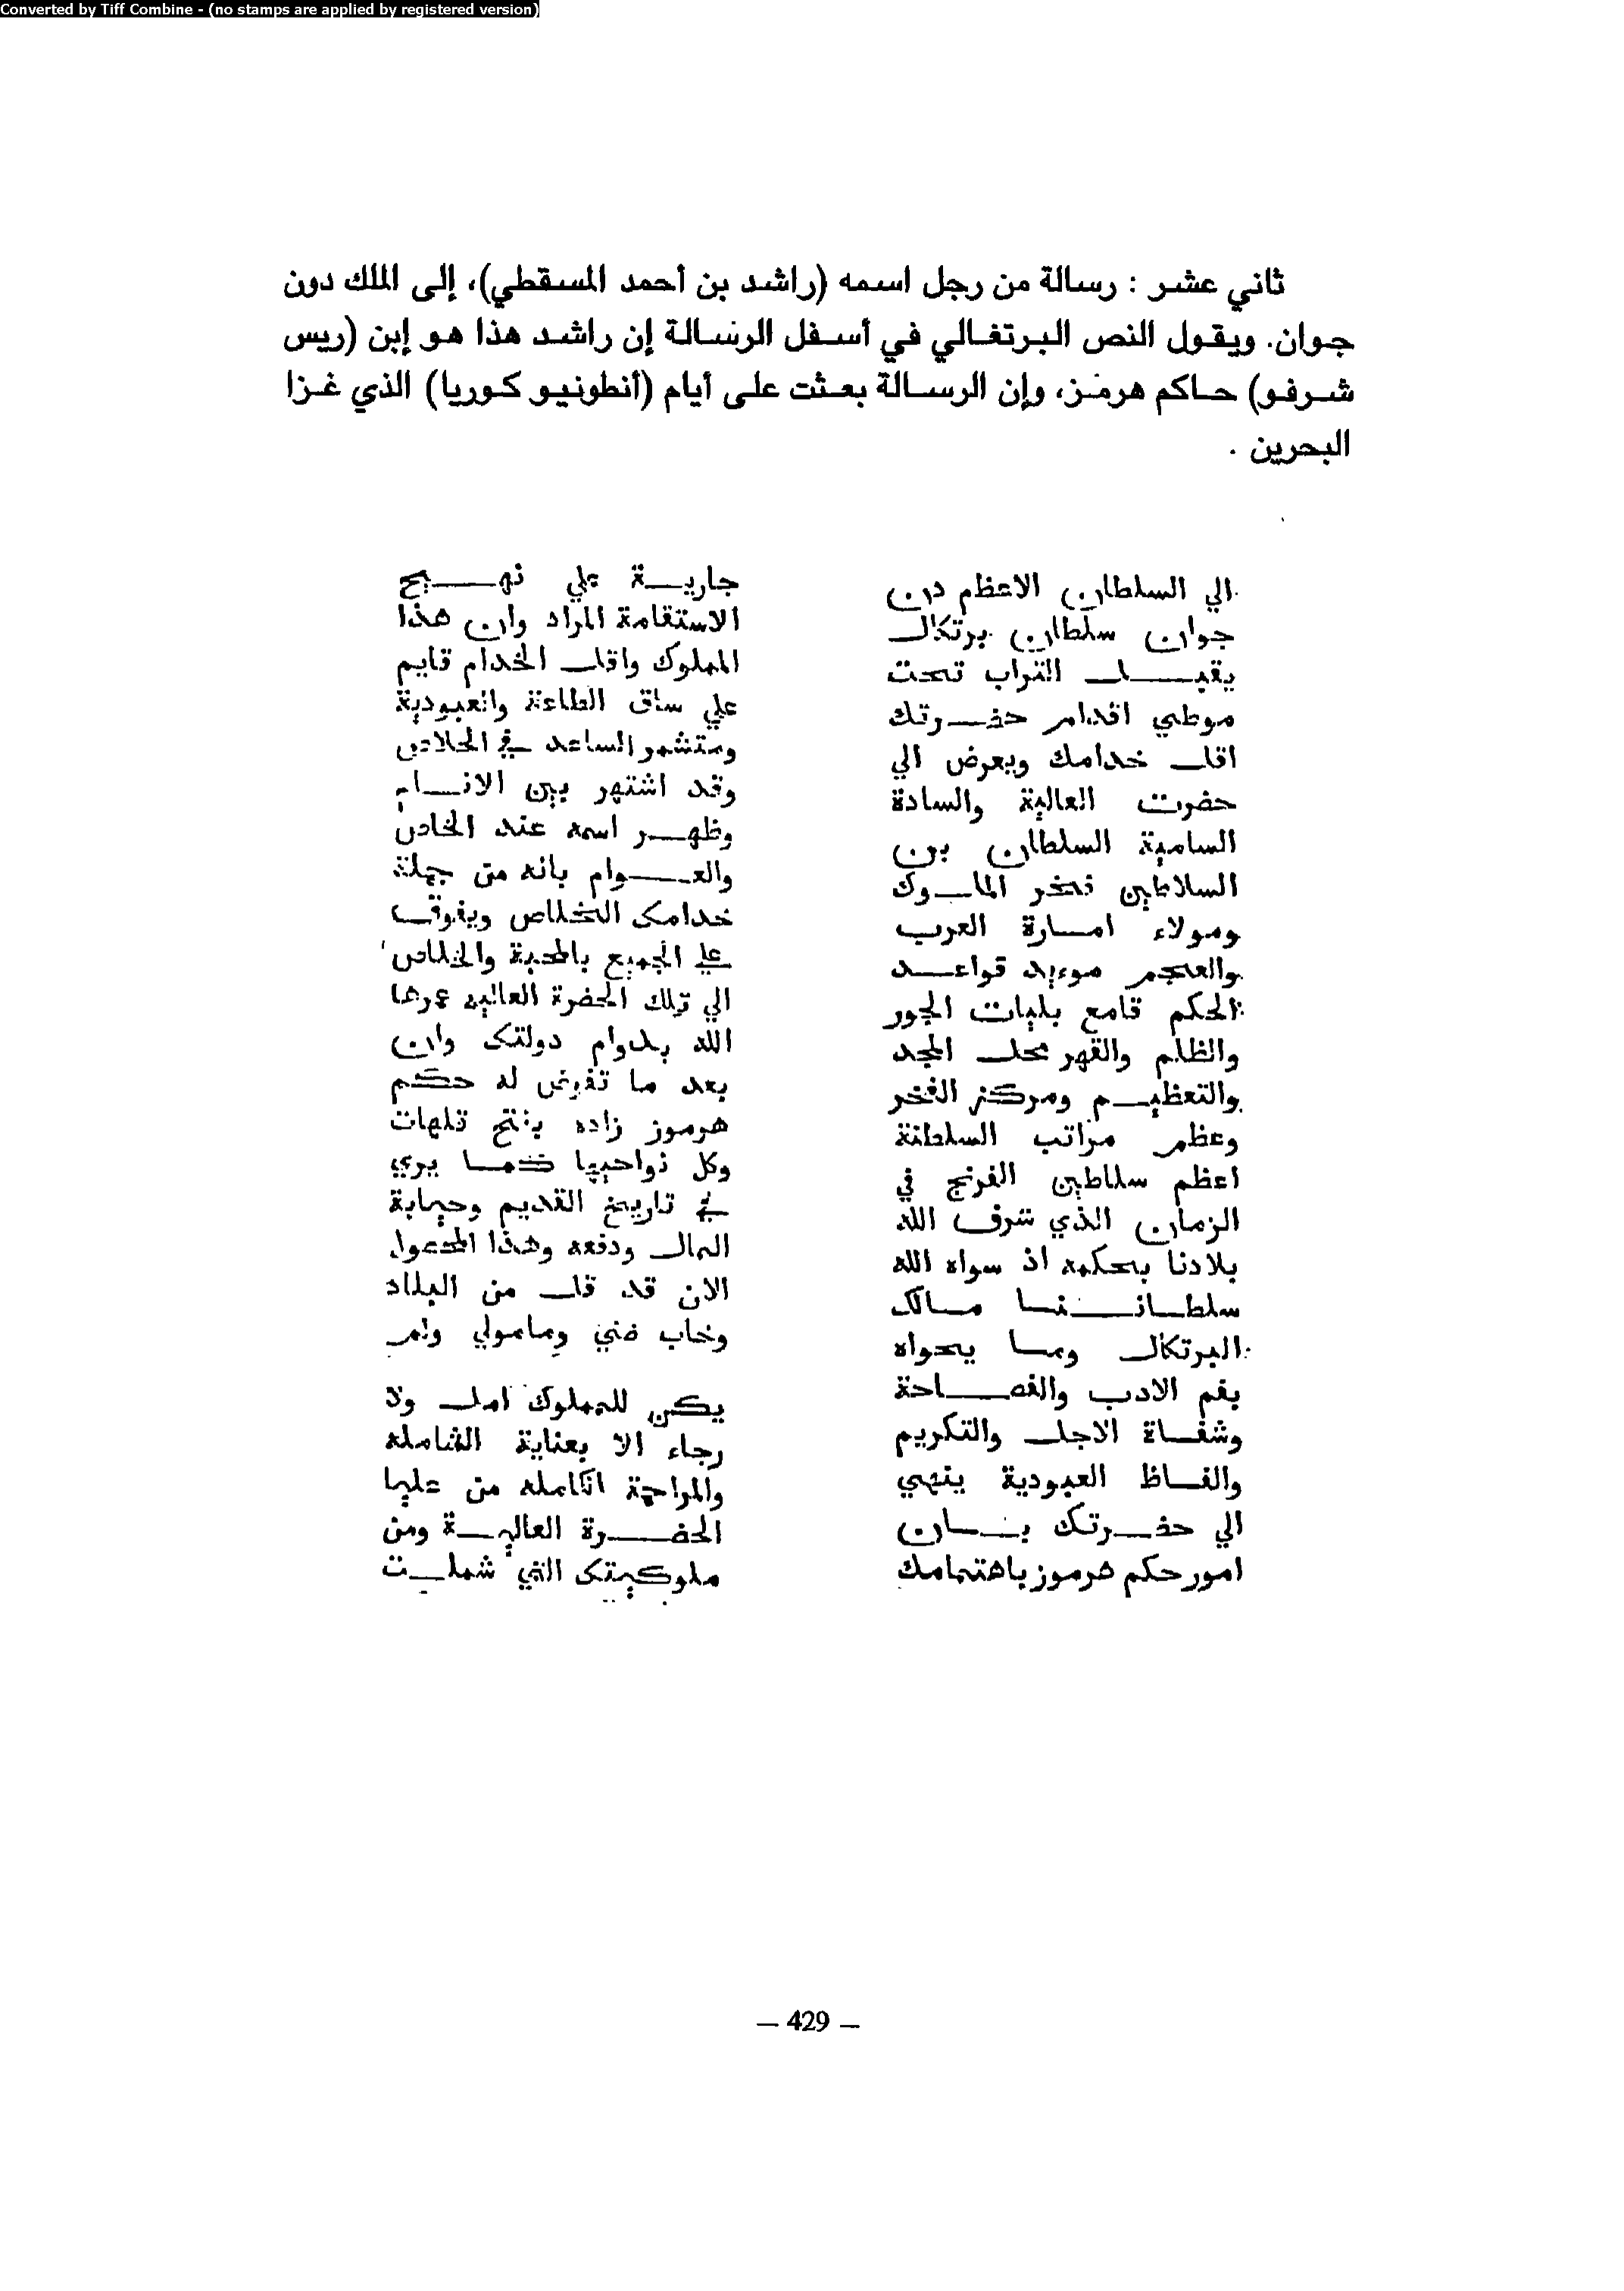 Converted by Tiff Combine - (no stamps are applied by registered version)
ثاني عشر : رسالة من رجل اسمه (راشد بن أحمد المسقطي)، إلى الملك دون
جوان. ويقول النص البرتغالي في أسفل الرسالة إن راشد هذا هو إبن (ريس
شرفو) حاكم هرمز، وإن الرسالة بعثت على أيام (أنطونيو كوريا) الذي غزا
البحرين .
الي السلطان الاعظم دون
جوان سلطان برتكال
يقبل التراب تحت
موطي اقدام حضرتك
اقل خدامك ويعرض الي
حضرت العالية والسادة
السامية السلطان بن
السلاطين فخر الملوك
ومولاء امارة العرب
والعجم مويد قواعد
الحكم قامع بليات الجور
والظلم والقهر محل المجد
والتعظيم ومركز الفخر
وعظم مراتب السلطنة
اعظم سلاطين الفرنج في
الزمان الذي شرف الله
بلادنا بحكمه اذ سواه الله
سلطاننا مالك
البرتكال وما يحواه
بفم الادب والفصاحة
وشفاة الاجل والتكريم
والفاظ العبودية ينهي
الي حضرتك بان
امور حكم هرموز باهتمامك
جارية علي نهج
الاستقامة المراد وان هذا
المملوك واقل الخدام قايم
علي ساق الطاعة والعبودية
ومتشمر الساعد في الخلاص
وقد اشتهر بين الانام
وظهر اسمه عند الخاص
والعوام بانه من جملة
خدامك الخلاص ويفوق
علي الجميع بالمحبة والخلاص
الي تلك الحضرة العالية عمرها
الله بدوام دولتك وان
بعد ما تفوض له حكم
هرموز زاده بفتح قلهات
وكل نواحيها كما يري
في تاريخ القديم وجباية
المال ودفعه وهذا المحصول
الان قد قل من البلاد
وخاب ظني ومامولي ولم
يكن للمملوك امل ولا
رجاء الا بعناية الشاملة
والمراحمة الكاملة من عليا
الحضرة العالية ومن
ملوكيتك التي شملت
– 429 –